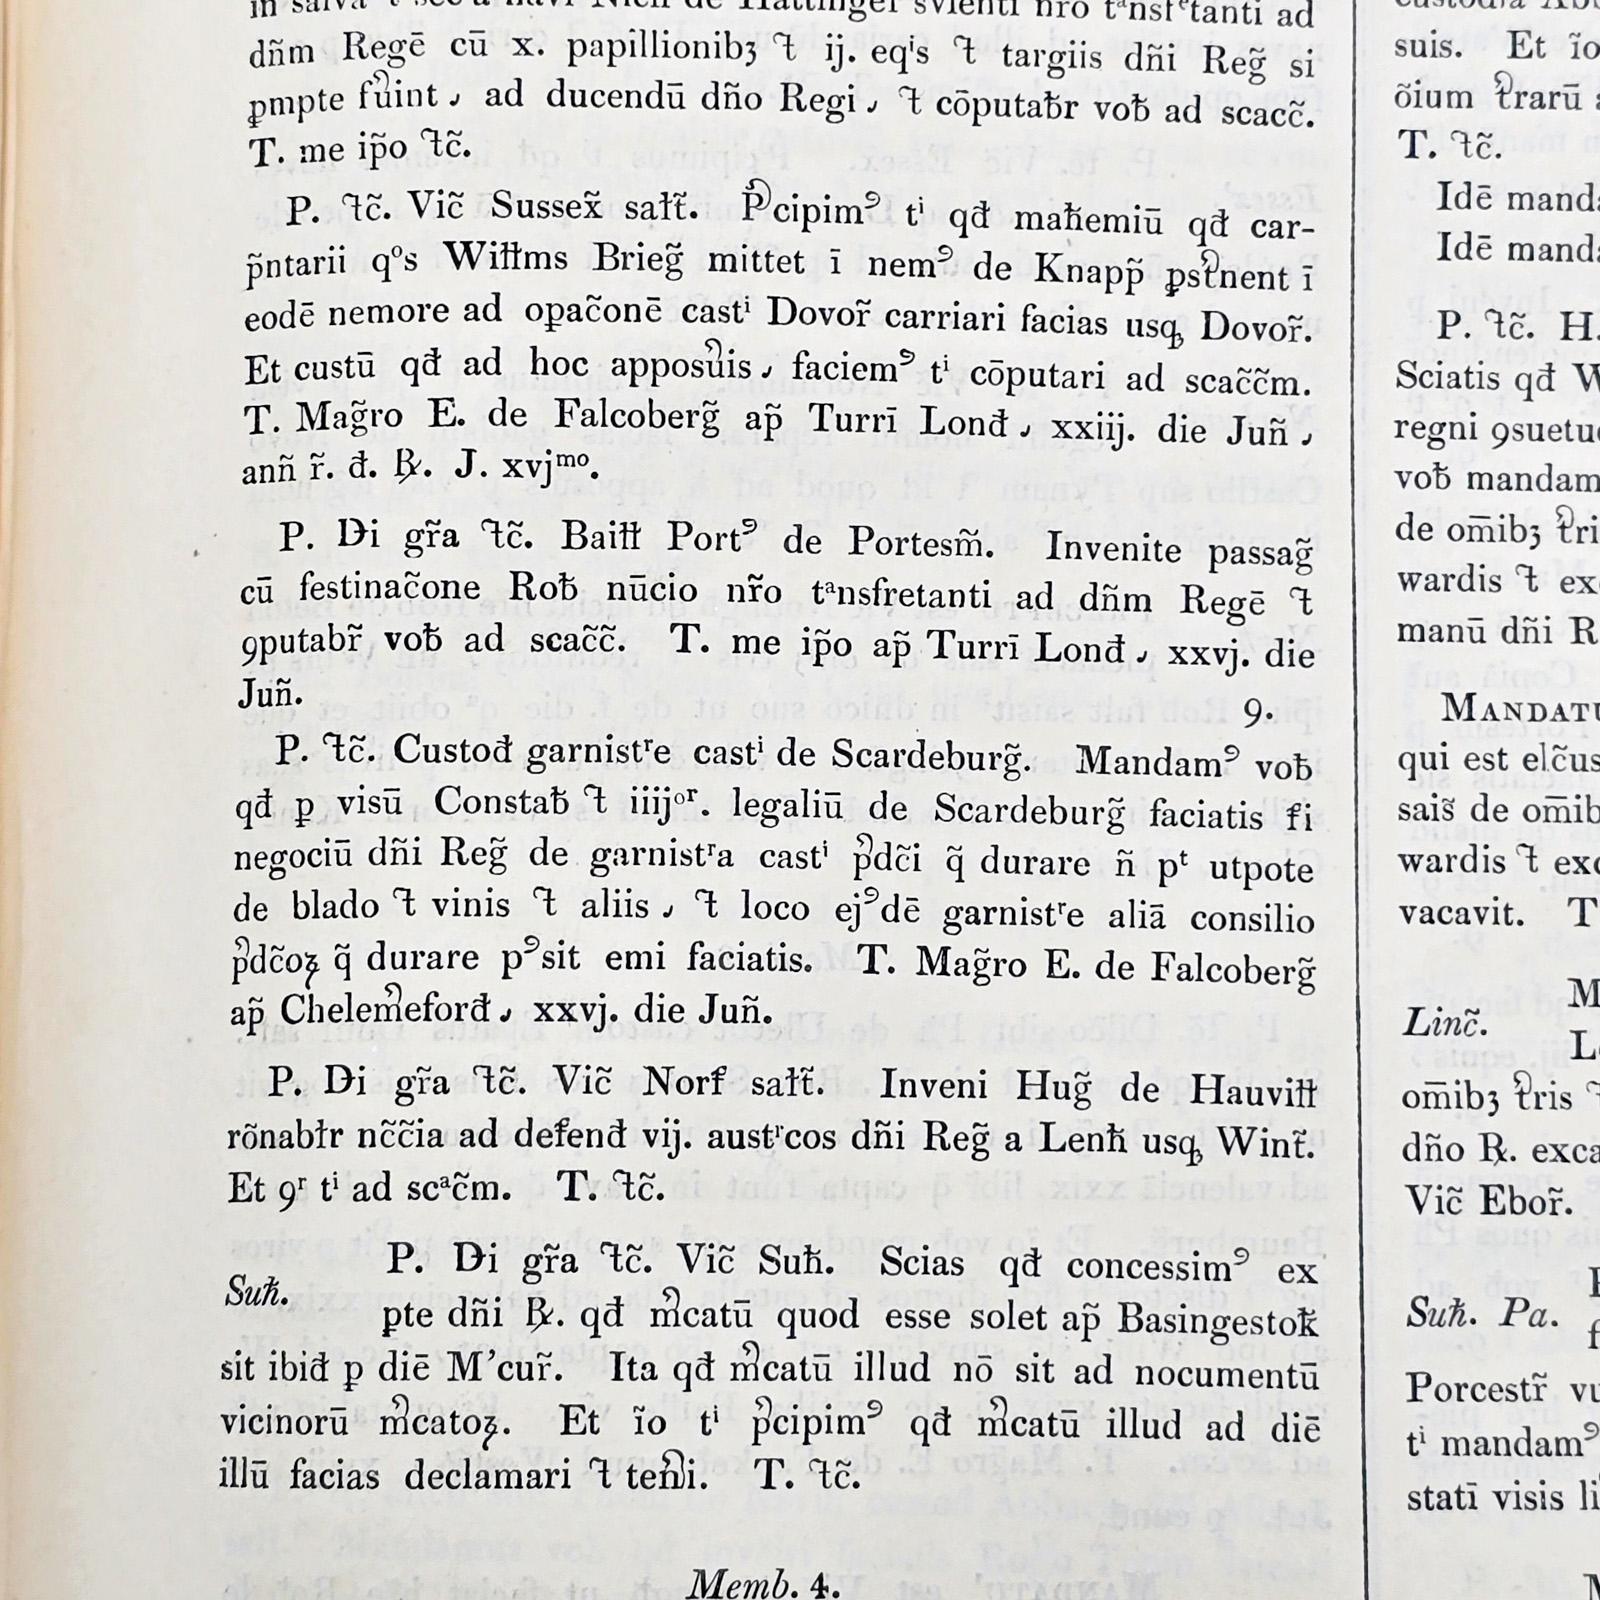 in salva ⁊ sec̃a navi Nich de Hattinger̃ svienti nr̃o tᵃnsfᵉtanti ad
dn̄m Regē cū x. papillionibꝫ ⁊ ij. eqⁱs ⁊ targiis dn̄i Reg̃ si
ꝑmpte fu͛int, ad ducendū dn̄o Regi, ⁊ cōputabr̃ vob̄ ad scacc̃.
T. me ip̃o ⁊c̃.
P. ⁊c̃. Vic̃ Sussex̃ sałt̃. P͛cipimꝰ tⁱ qđ mahemiū qđ car-
p̃ntarii qᵒs Wiłłms Brieg̃ mittet ī nemꝰ de Knapp̃ ꝑst͛nent ī
eodē nemore ad opac̃onē castⁱ Dovor̃ carriari facias usqꝫ Dovor̃.
Et custū qđ ad hoc apposu͛is, faciemꝰ tⁱ cōputari ad scac̃c̃m.
T. Mag̃ro E. de Falcoberg̃ ap̃ Turrī Lonđ, xxiij. die Juñ,
anñ r̃. đ. ꝶ. J. xvjᵐᵒ.
P. Đi gr̃a ⁊c̃. Baiłł Portꝰ de Portesm̃. Invenite passag̃
cū festinac̃one Rob̄ nūcio nr̃o tᵃnsfretanti ad dn̄m Regē ⁊
ꝯputabr̃ vob̄ ad scac̃c̃. T. me ip̃o ap̃ Turrī Lonđ, xxvj. die
Juñ.
9.
P. ⁊c̃. Custođ garnistʳe castⁱ de Scardeburg̃. Mandamꝰ vob̄
qđ ꝑ visū Constab̄ ⁊ iiijᵒʳ. legaliū de Scardeburg̃ faciatis fi
negociū dn̄i Reg̃ de garnistʳa castⁱ p͛dc̃i q̃ durare ñ pᵗ utpote
de blado ⁊ vinis ⁊ aliis, ⁊ loco ejꝰdē garnistʳe aliā consilio
p͛dc̃oꝝ q̃ durare pꝰsit emi faciatis. T. Mag̃ro E. de Falcoberg̃
ap̃ Chelem͛eforđ, xxvj. die Juñ.
P. Đi gr̃a ⁊c̃. Vic̃ Norf sałt̃. Inveni Hug̃ de Hauviłł
rōnabłr nc̃c̃ia ad defenđ vij. austʳcos dn̄i Reg̃ a Lenħ usqꝫ Wint̃.
Et ꝯʳ tⁱ ad scᵃc̃m. T. ⁊c̃.
Suħ.
P. Đi gr̃a ⁊c̃. Vic̃ Suħ. Scias qđ concessimꝰ ex
ꝑte dn̄i ꝶ. qđ m͛catū quod esse solet ap̃ Basingestoꝁ
sit ibiđ ꝑ diē M’cur̃. Ita qđ m͛catū illud nō sit ad nocumentū
vicinorū m͛catoꝝ. Et ĩo tⁱ p͛cipimꝰ qđ m͛catū illud ad diē
illū facias declamari ⁊ ten͛i. T. ⁊c̃.
Memb. 4.
suis. Et ĩo
õium t͛rarū
T. ⁊c̃.
Idē
Idē
P. ⁊c̃. H.
Sciatis qđ
regni
vob̄
de om̄ibꝫ
wardis ⁊
manū dn̄i
qui est elc̃us
sais̃ de
wardis ⁊
vacavit. T
Linc̃.
om̄ibꝫ t͛ris
dn̄o ꝶ.
Vic̃ Ebor̃.
Suħ. Pa.
Porcestr̃
tⁱ mandamꝰ
statī visis